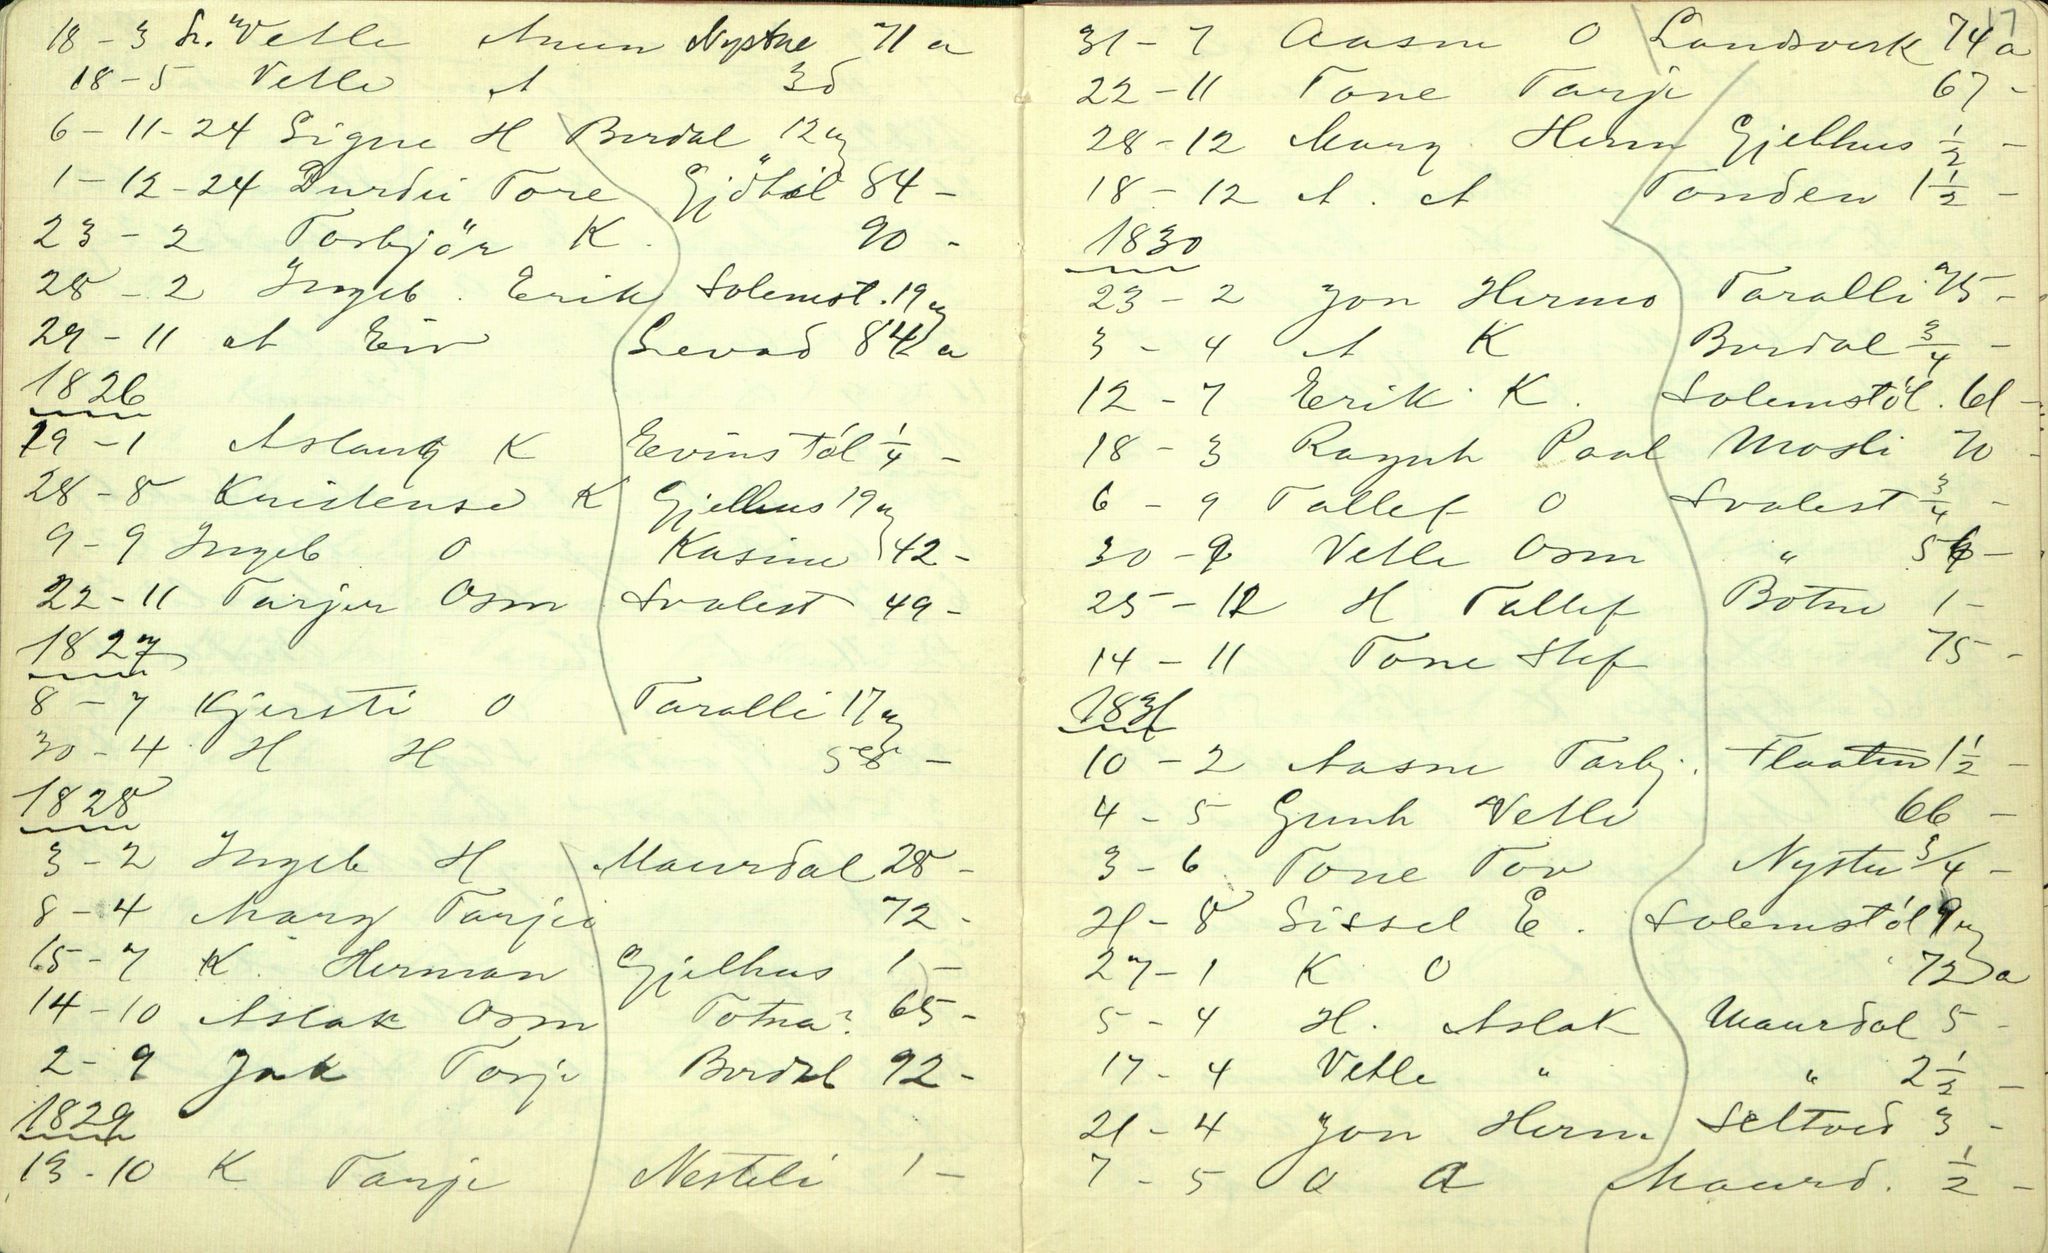 18 - 3 Vetle Nystue 71 a
18 - 5 Vetle A 3d
6 - 11 - 24 Signe H Burdal 12 u
1 - 12 - 24 Durdei Tore 84 -
23 - 2 Torbjör K. 90 -
28 - 2 Ingeb. Erik Solemst. 19 u
29 - 11 A Eiv Sevad 84 a
1826
19 - 1 Aslaug K Eivinstöl 1/4 -
28 - 8 K Gjelhus 19 u
9 - 9 Ingeb O Kasine 42 -
22 - 11 Tarjer Osm Svalest 49 -
1827
8 - 7 Kjersti O Taralli 17 u
30 - 4 H H 58 -
1828
3 - 2 Ingeb H Maurdal 28 -
8 - 4 Marg Tarjei 72 -
15 - 7 K. Herman Gjelhus 1 -
14 - 10 Aslak Osm Totna? 65 -
2 - 9 Jak Torje Burdal 92 -
1829
13 - 10 K Tarje Nesteli 1 -
17
31 - 7 Aasne O Landsverk 74 a
22 - 11 Tone Tarje 67 -
28 - 12 Marg Herm Gjelhus 1/2 -
18 - 12 A. A Tonden 1 1/2 -
1830
23 - 2 Jon Hermo Taralli 75 -
3 - 4 A K Burdal 3/4 -
12 - 7 Erik K. Solemstöl. 61 -
18 - 3 Ragnh Paal Mosli 70 -
6 - 9 Tallef O Svalest 3/4 -
30 - 9 Vetle Osm "
25 - 12 H Tallef Botne 1 -
14 - 11 Tone Stef 75 -
1831
10 - 2 Aasne Torbj. Flaaten 1 1/2 -
4 - 5 Gunh Vetle 66 -
3 - 6 Tone Tov Nystu 3/4 -
21 - 8 Sissel E. Solemstöl 9 u
27 - 1 K O 72 a
5 - 4 H. Aslak Maurdal 5 -
17 - 4 Vetle " " 2 1/2 -
21 - 4 Jon Herm Seltved 3 -
7 - 5 O A Maurd. 1/2 -